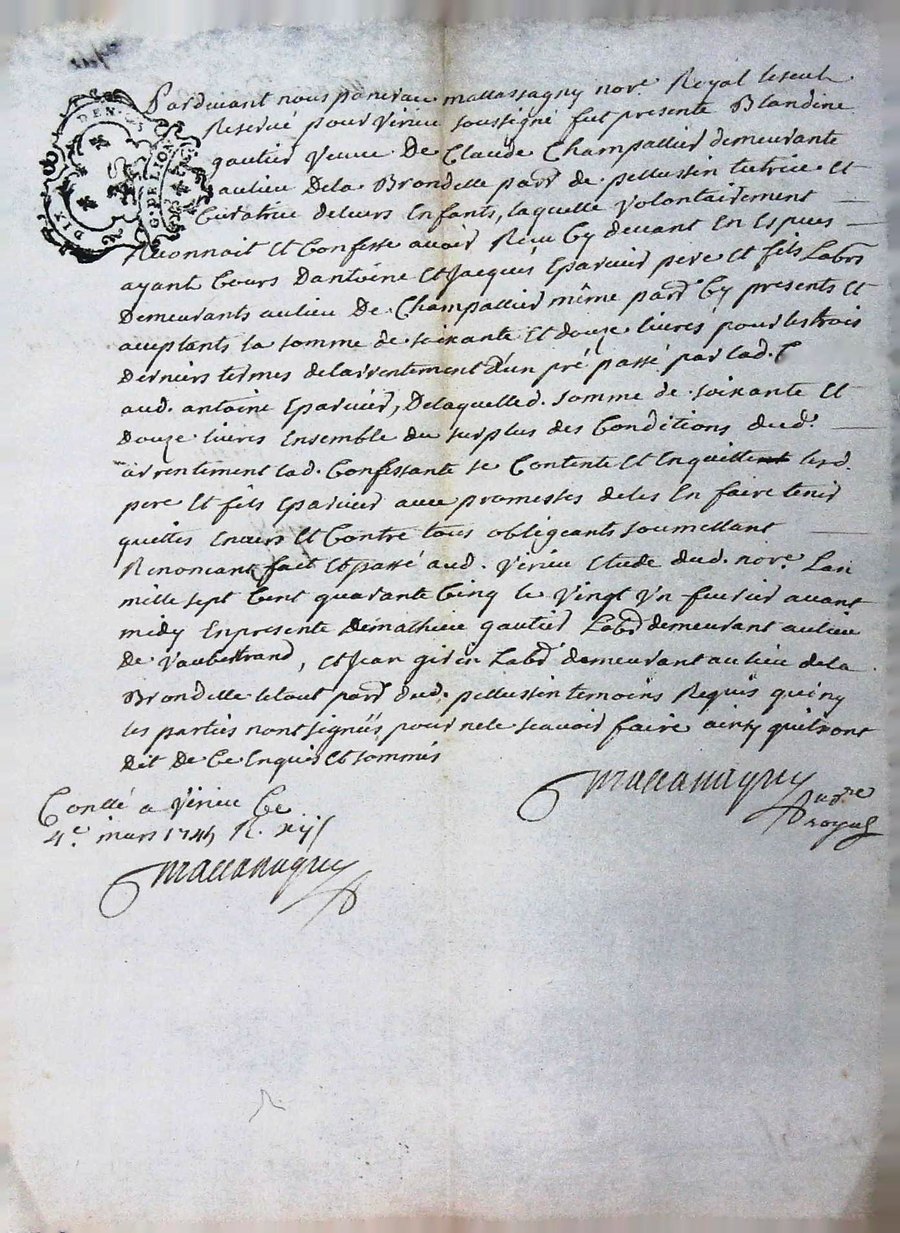 DIX DEN.
G. DE LION
Pardevant nous pancrace mattassagny nore Royal le seul
Reservé pour Virieu soussigné fut presente Blandine
gautier Veuve De Claude Champallier demeurante
au lieu De la Brondelle parr de pellussin tutrice et
Curatrice de leurs Enfants, laquelle Volontairement
Reconnait Et Confesse avoir Reçu Cy devant En Espuces
ayant Cours D'antoine Et Jacques Eparvier pere et fils Labrs
Demeurants au lieu De Champallier même parr Cy presents Et
acceptants la somme de soixante Et douze livres pour les trois
Derniers termes de larrentement d'un pré passé par lad.
aud. antoine Eparvier, De laquelle d. somme de soixante Et
Douze livres Ensemble du surplus des Conditions dud.
arrentement lad. Confessante se Contente Et En quitte lesd.
pere Et fils Eparvier avec promesses de les En faire tenir
quittes Envers Et Contre tous obligeants soumettant
Renonçant fait Et passé aud. Virieu Etude dud. nore. Lan
mille sept Cent quarante Cinq le Vingt Vn fevrier avant
midy En presente De mathieu gautier Labr demeurant au lieu
de Vaubertrand, Et Jean girin Labr demeurant au lieu de la
Brondelle le tout parr dud. pellussin temoins Requis qui ny
les parties n'ont signés pour ne le scavoir faire ainsy quils ont
dit De Ce Enquis Et sommis
Conllé a Virieu Ce
4.e mars 1745 R. xij s
royal